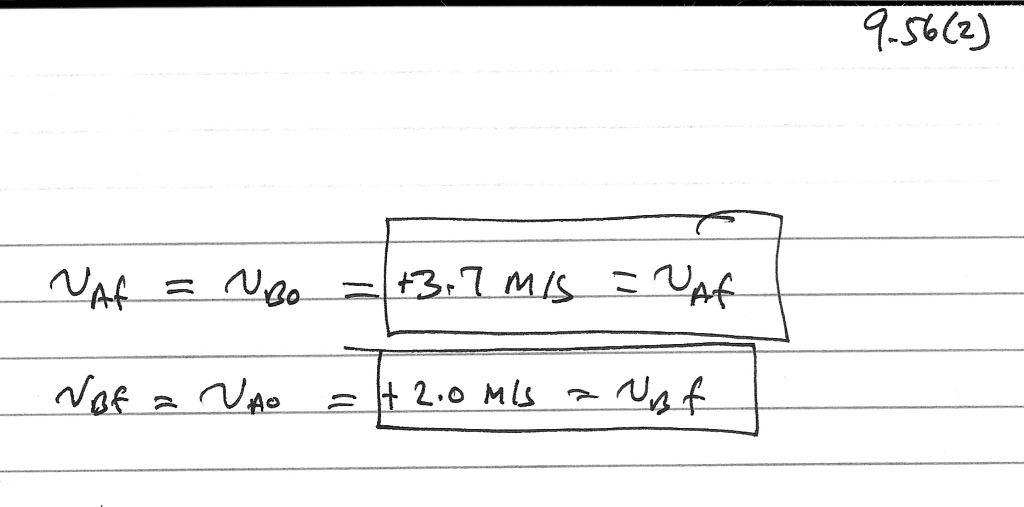 9.56(2)
vAf = vBo = +3.7 M/S = vAf
vBf = vAo = +2.0 M/S = vBf